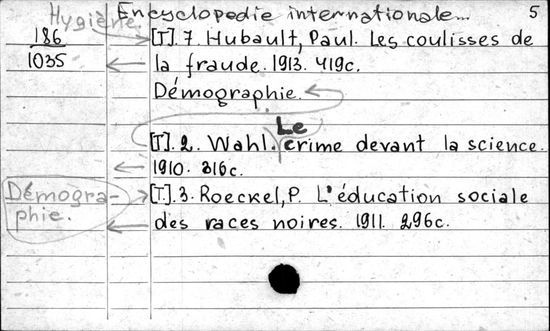 Hygiène. Encyclopedie internationale... 5
186 [T]. 7. Hubault, Paul. Les coulisses de
1035 la fraude. 1913. 419c.
Démographie.
Le
[T]. 2. Wahl. crime devant la science.
1910. 316c.
Démogra- [T]. 3. Roeckel, P. L'éducation sociale
phie. des races noires. 1911. 296c.